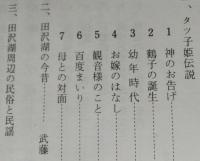 、タッ子姫伝説
1 神のお告げ
2 鶴子の誕生
3 幼年時代
4 お嫁のはなし
5 観音様のこと
6 百度まいり
7 母との対面
二、田沢湖の今昔……武藤
三、田沢湖周辺の民俗と民謡